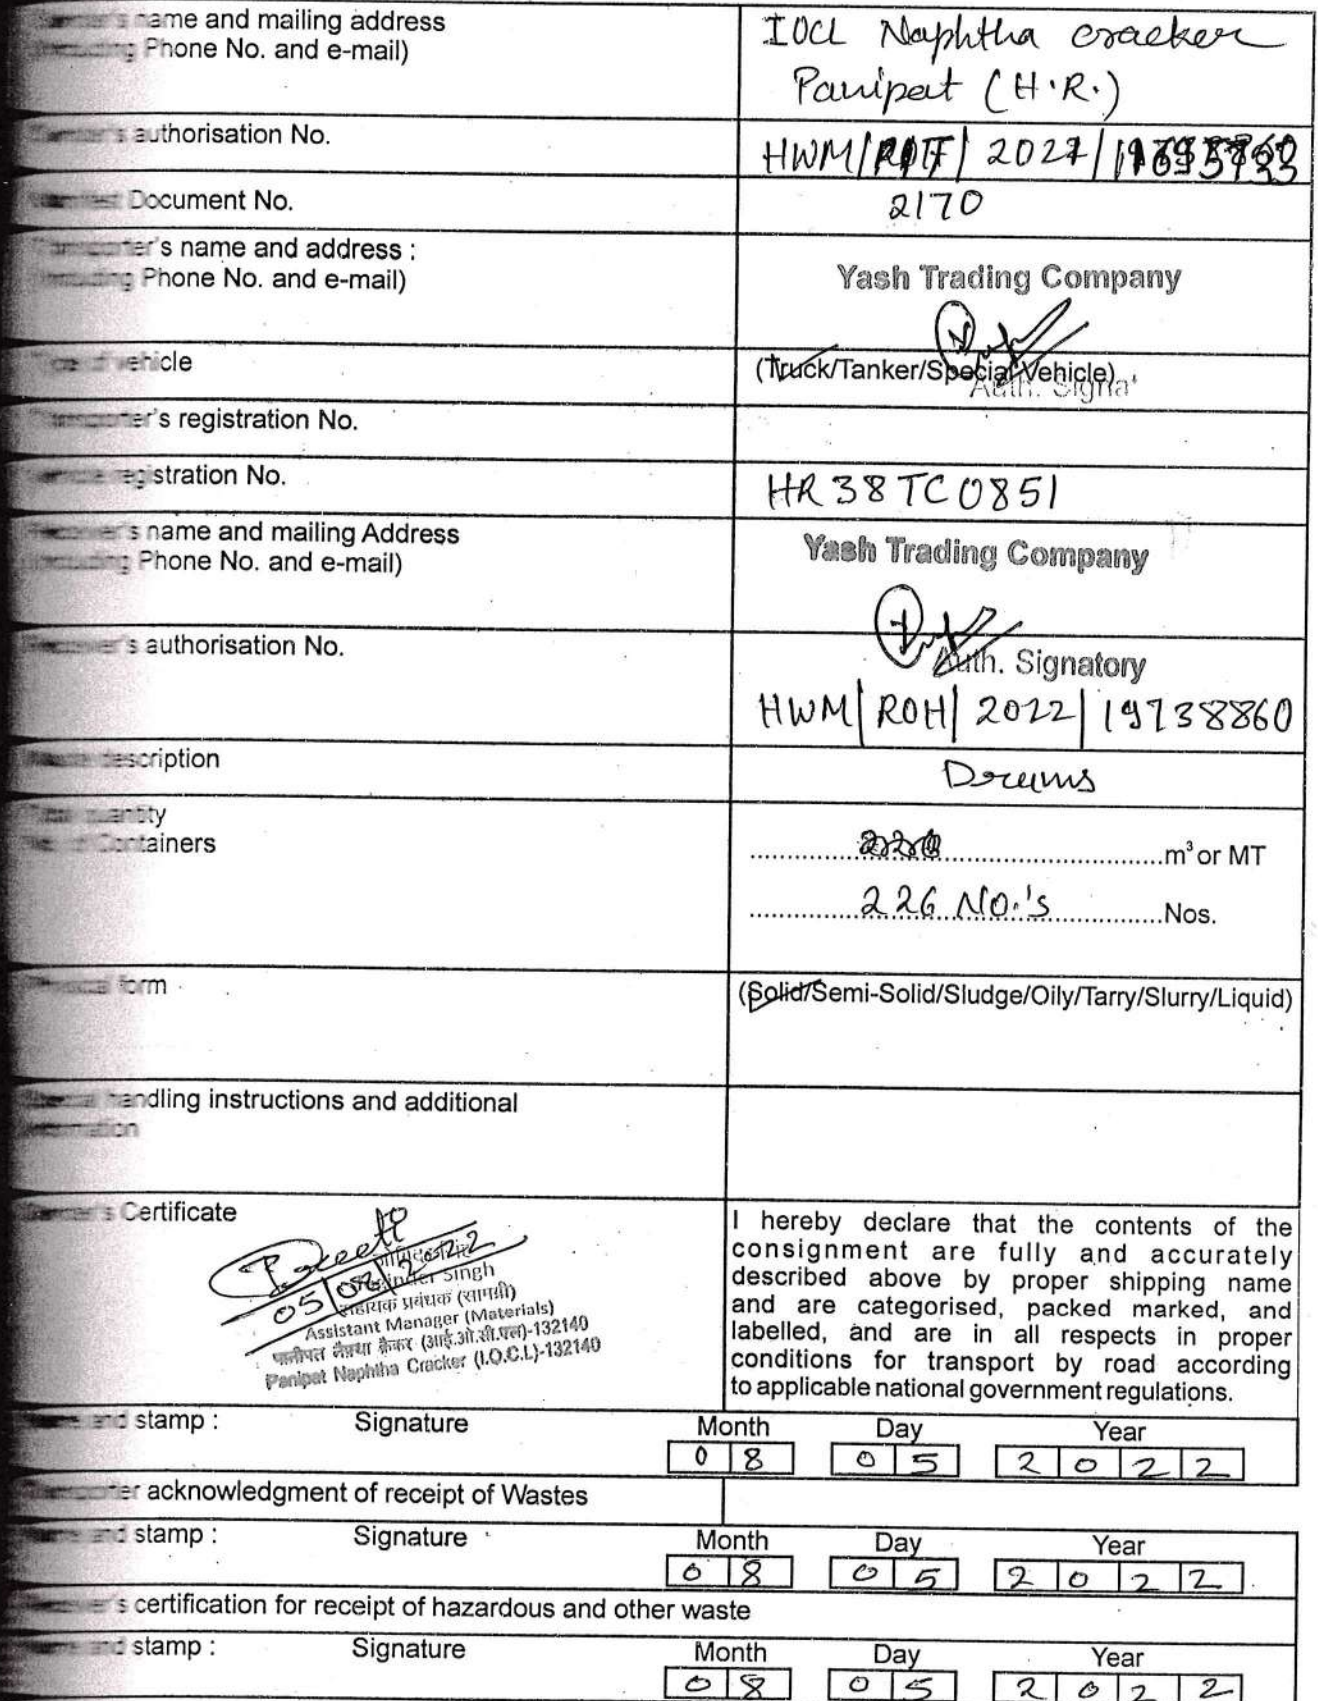 name and mailing address
Phone No. and e-mail)
IOCL Naphtha cracker
Panipat (H.R.)
authorisation No.
HWM/ / 2027/
Document No.
2170
's name and address :
Phone No. and e-mail)
Yash Trading Company
vehicle
(Truck/Tanker/Special Vehicle)
Auth. Signa
's registration No.
registration No.
HR38TC0851
's name and mailing Address
Phone No. and e-mail)
Yash Trading Company
's authorisation No.
Auth. Signatory
HWM/ROH/2022/19738860
description
Drums
quantity
Containers
m³ or MT
226 No.'s Nos.
form
(Solid/Semi-Solid/Sludge/Oily/Tarry/Slurry/Liquid)
handling instructions and additional
's Certificate
Preeti
05/08/2022
Singh
सहायक प्रबंधक (सामग्री)
Assistant Manager (Materials)
पानीपत नैफ्था क्रैकर (आई.ओ.सी.एल)-132140
Panipat Naphtha Cracker (I.O.C.L)-132140
I hereby declare that the contents of the
consignment are fully and accurately
described above by proper shipping name
and are categorised, packed marked, and
labelled, and are in all respects in proper
conditions for transport by road according
to applicable national government regulations.
and stamp : Signature Month Day Year
08 05 2022
acknowledgment of receipt of Wastes
and stamp : Signature Month Day Year
08 05 2022
's certification for receipt of hazardous and other waste
and stamp : Signature Month Day Year
08 05 2022